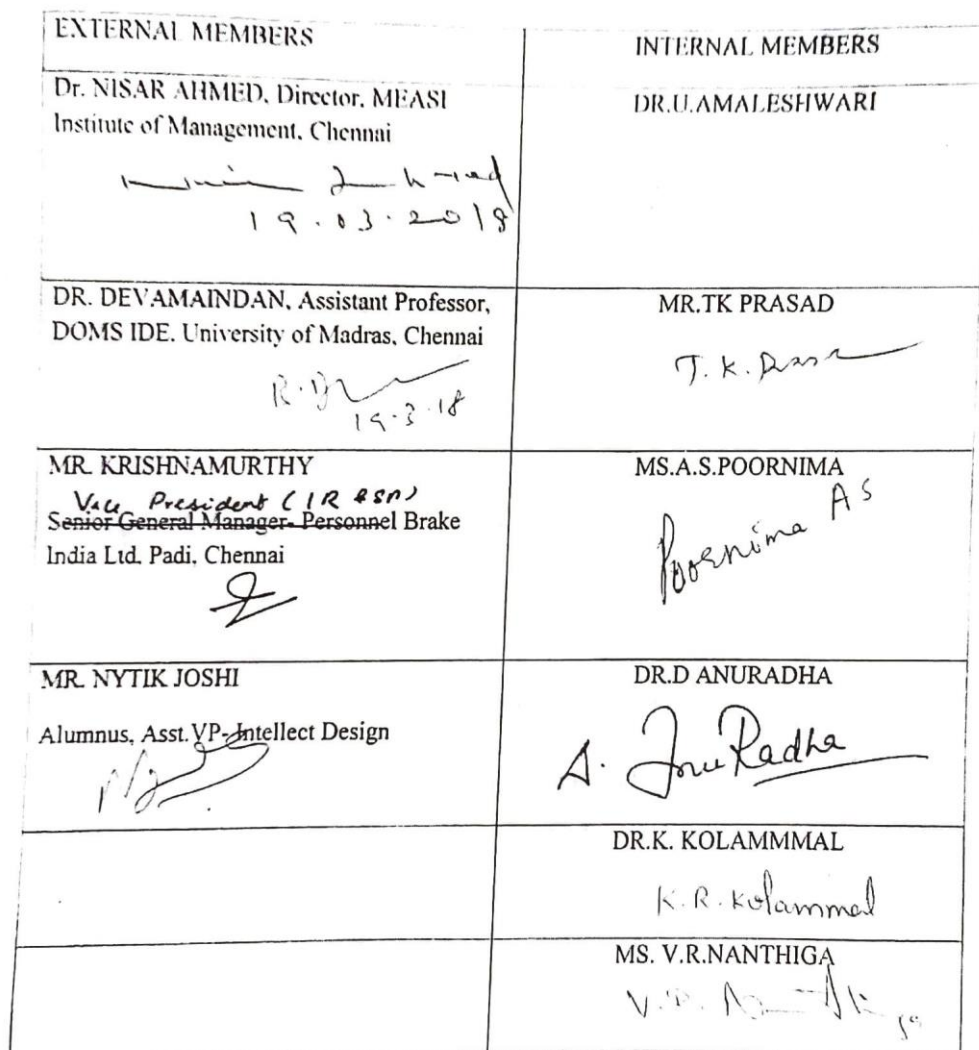 EXTERNAL MEMBERS
INTERNAL MEMBERS
Dr. NISAR AHMED, Director, MEASI
Institute of Management, Chennai
19.03.2018
DR.U.AMALESHWARI
DR. DEVAMAINDAN, Assistant Professor,
DOMS IDE. University of Madras, Chennai
19.3.18
MR.TK PRASAD
T.K.
MR. KRISHNAMURTHY
Vice President (IR
Senior General Manager- Personnel Brake
India Ltd. Padi, Chennai
MS.A.S.POORNIMA
Poornima A S
MR. NYTIK JOSHI
Alumnus, Asst.VP-Intellect Design
DR.D ANURADHA
AnuRadha
DR.K. KOLAMMMAL
K.R.Kolammal
MS. V.R.NANTHIGA